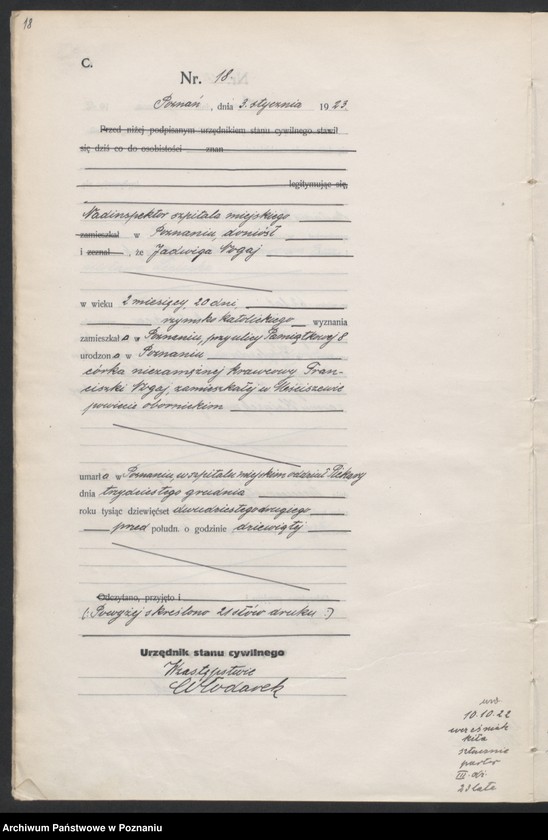 18
C.
Nr. 18
Poznań, dnia 3. stycznia 1923.
Przed niżej podpisanym urzędnikiem stanu cywilnego stawił
się dziś co do osobistości znan
legitymując się,
Nadinspektor szpitala miejskiego
zamieszkał w Poznaniu, doniósł
i zeznał, że Jadwiga Nogaj
w wieku 2 miesięcy 20 dni,
rzymsko katolickiego wyznania
zamieszkała w Poznaniu, przy ulicy Pamiątkowej 8
urodzona w Poznaniu
córka niezamężnej krawcowy Fran-
ciszki Nogaj, zamieszkałej w Uściszewie
powiecie obornickim
umarła w Poznaniu, w szpitalu miejskim oddział Piekary
dnia trzydziestego grudnia
roku tysiąc dziewięćset dwudziestegodrugiego
przed połudn. o godzinie dziewiątej
Odczytano, przyjęto i
(: Powyżej skreślono 21 słów druku :)
Urzędnik stanu cywilnego
W zastępstwie
Włodarek
10.10.22
kiła
sztucznie
III. dz.
23 lata
Archiwum Państwowe w Poznaniu